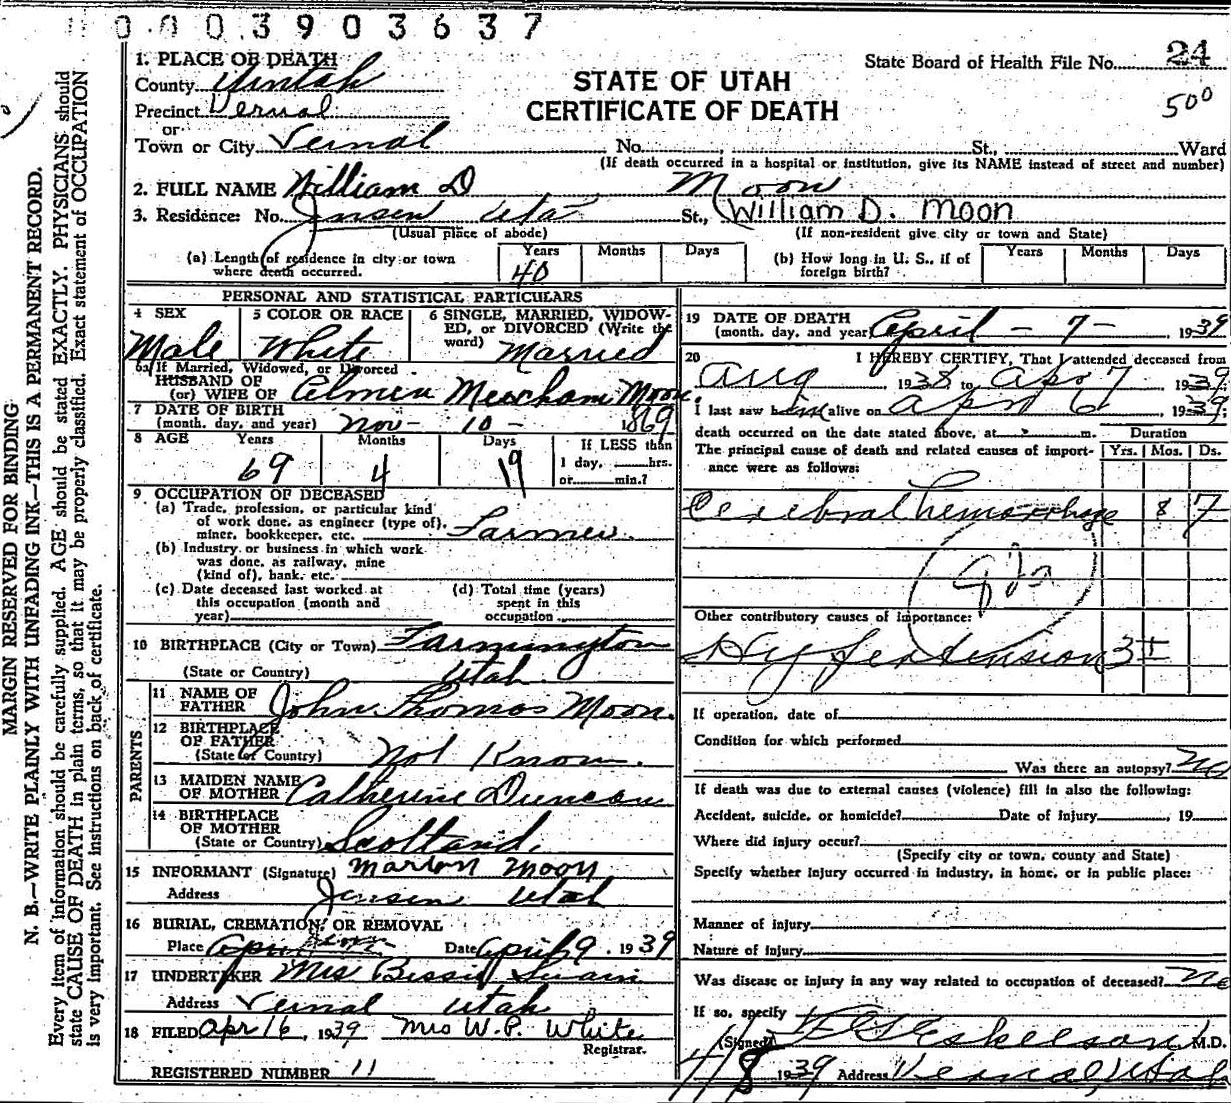 0 0 0 3 9 0 3 6 3 7
MARGIN RESERVED FOR BINDING
N. B.—WRITE PLAINLY WITH UNFADING INK—THIS IS A PERMANENT RECORD.
Every item of information should be carefully supplied. AGE should be stated EXACTLY. PHYSICIANS should
state CAUSE OF DEATH in plain terms, so that it may be properly classified. Exact statement of OCCUPATION
is very important. See instructions on back of certificate.
State Board of Health File No. 24
500
STATE OF UTAH
CERTIFICATE OF DEATH
1. PLACE OF DEATH
County Uintah
Precinct Vernal
or
Town or City Vernal No. St., Ward
(If death occurred in a hospital or institution, give its NAME instead of street and number)
2. FULL NAME William D Moon
3. Residence: No. Jensen Utah St., William D. Moon
(Usual place of abode) (If non-resident give city or town and State)
(a) Length of residence in city or town where death occurred. Years 40 Months Days
(b) How long in U. S., if of foreign birth? Years Months Days
PERSONAL AND STATISTICAL PARTICULARS
4 SEX Male
5 COLOR OR RACE White
6 SINGLE, MARRIED, WIDOWED, or DIVORCED (Write the word) Married
6a If Married, Widowed, or Divorced
HUSBAND OF
(or) WIFE OF Meacham Moon
7 DATE OF BIRTH
(month, day, and year) Nov- 10- 1869
8 AGE Years 69 Months 4 Days 19 If LESS than
1 day, hrs.
or min.?
9 OCCUPATION OF DECEASED
(a) Trade, profession, or particular kind
of work done, as engineer (type of),
miner, bookkeeper, etc. Farmer
(b) Industry or business in which work
was done, as railway, mine
(kind of), bank, etc.
(c) Date deceased last worked at
this occupation (month and
year)
(d) Total time (years)
spent in this
occupation
10 BIRTHPLACE (City or Town) Farmington
(State or Country) Utah
PARENTS
11 NAME OF FATHER John Thomas Moon.
12 BIRTHPLACE OF FATHER
(State or Country) Not Know.
13 MAIDEN NAME OF MOTHER Catherine Duncan
14 BIRTHPLACE OF MOTHER
(State or Country) Scotland.
15 INFORMANT (Signature) Marion Moon
Address Jensen Utah
16 BURIAL, CREMATION, OR REMOVAL
Place Date April 9, 1939
17 UNDERTAKER Mrs Bessie Swain
Address Vernal Utah
18 FILED Apr 16, 1939 Mrs W. P. White
Registrar.
REGISTERED NUMBER 11
19 DATE OF DEATH
(month, day, and year) April - 7 - 1939
20 I HEREBY CERTIFY, That I attended deceased from
Aug 1938 to Apr 7, 1939
I last saw him alive on Apr 6, 1939,
death occurred on the date stated above, at m.
The principal cause of death and related causes of importance were as follows:
Duration
Yrs. Mos. Ds.
Cerebral hemorrhage 8 7
Other contributory causes of importance:
Hypertension 3 ±
If operation, date of
Condition for which performed
Was there an autopsy? No
If death was due to external causes (violence) fill in also the following:
Accident, suicide, or homicide? Date of injury , 19
Where did injury occur?
(Specify city or town, county and State)
Specify whether injury occurred in industry, in home, or in public place:
Manner of injury
Nature of injury
Was disease or injury in any way related to occupation of deceased? No
If so, specify
(Signed) Eskelson, M.D.
4/8 1939 Address Vernal, Utah